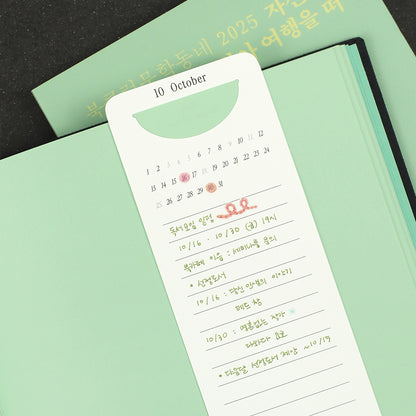 북클럽문학동네 2025
여행을 떠
10 October
1 2 3 4 5 6 7 8 9 10 11 12
13 14 15 16 17 18 19 20 21 22 23 24
25 26 27 28 29 30 31
독서모임 일정
10/16 · 10/30 19시
북카페 이음 : 세미나룸
• 선정도서
10/16 : 당신 인생의 이야기
테드 창
10/30 : 영혼없는 작가
다와다 요코
• 다음달 선정도서 제안 ~10/19